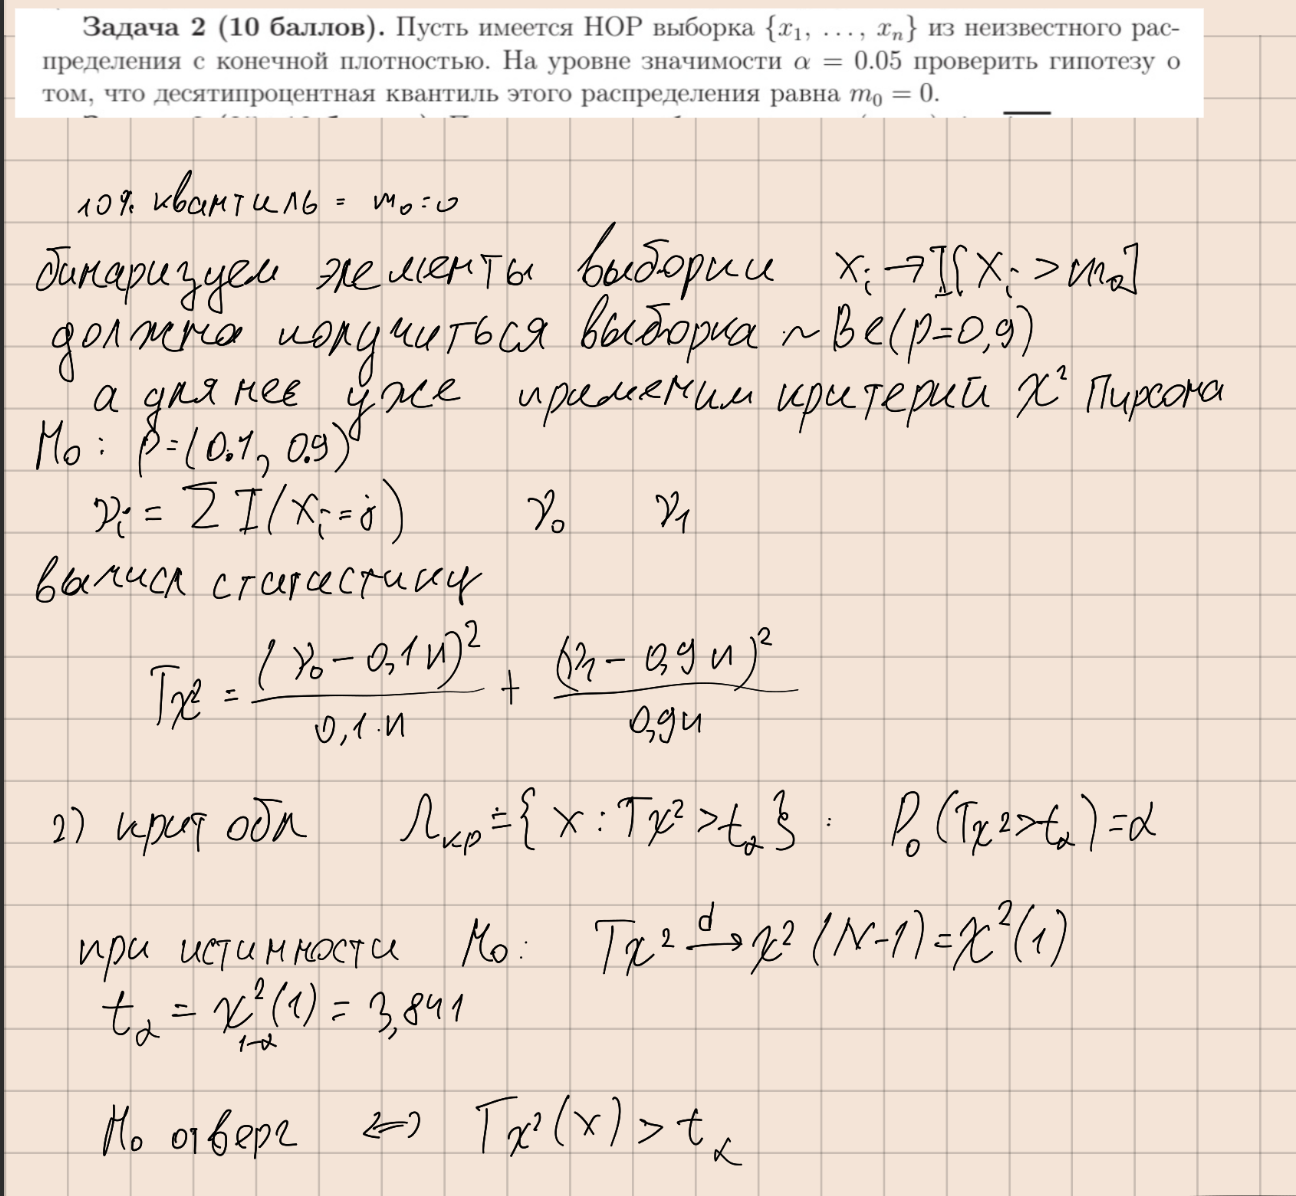 Задача 2 (10 баллов). Пусть имеется НОР выборка {x₁, …, xₙ} из неизвестного рас-
пределения с конечной плотностью. На уровне значимости α = 0.05 проверить гипотезу о
том, что десятипроцентная квантиль этого распределения равна m₀ = 0.
10% квантиль = m₀ = 0
бинаризуем элементы выборки xᵢ → I[xᵢ > m₀]
должна получиться выборка ~ Be(p=0,9)
а для нее уже применим критерий χ² Пирсона
H₀: p = (0.1, 0.9)
νⱼ = Σ I(xᵢ = j) ν₀ ν₁
вычисл статистику
Tχ² = (ν₀ − 0,1n)² / 0,1·n + (ν₁ − 0,9n)² / 0,9n
2) крит обл Λкр ≑ {x : Tχ² > t_α} : P₀(Tχ² > t_α) = α
при истинности H₀: Tχ² →ᵈ χ²(N−1) = χ²(1)
t_α = χ²₁₋α(1) = 3,841
H₀ отверг ⇔ Tχ²(x) > t_α